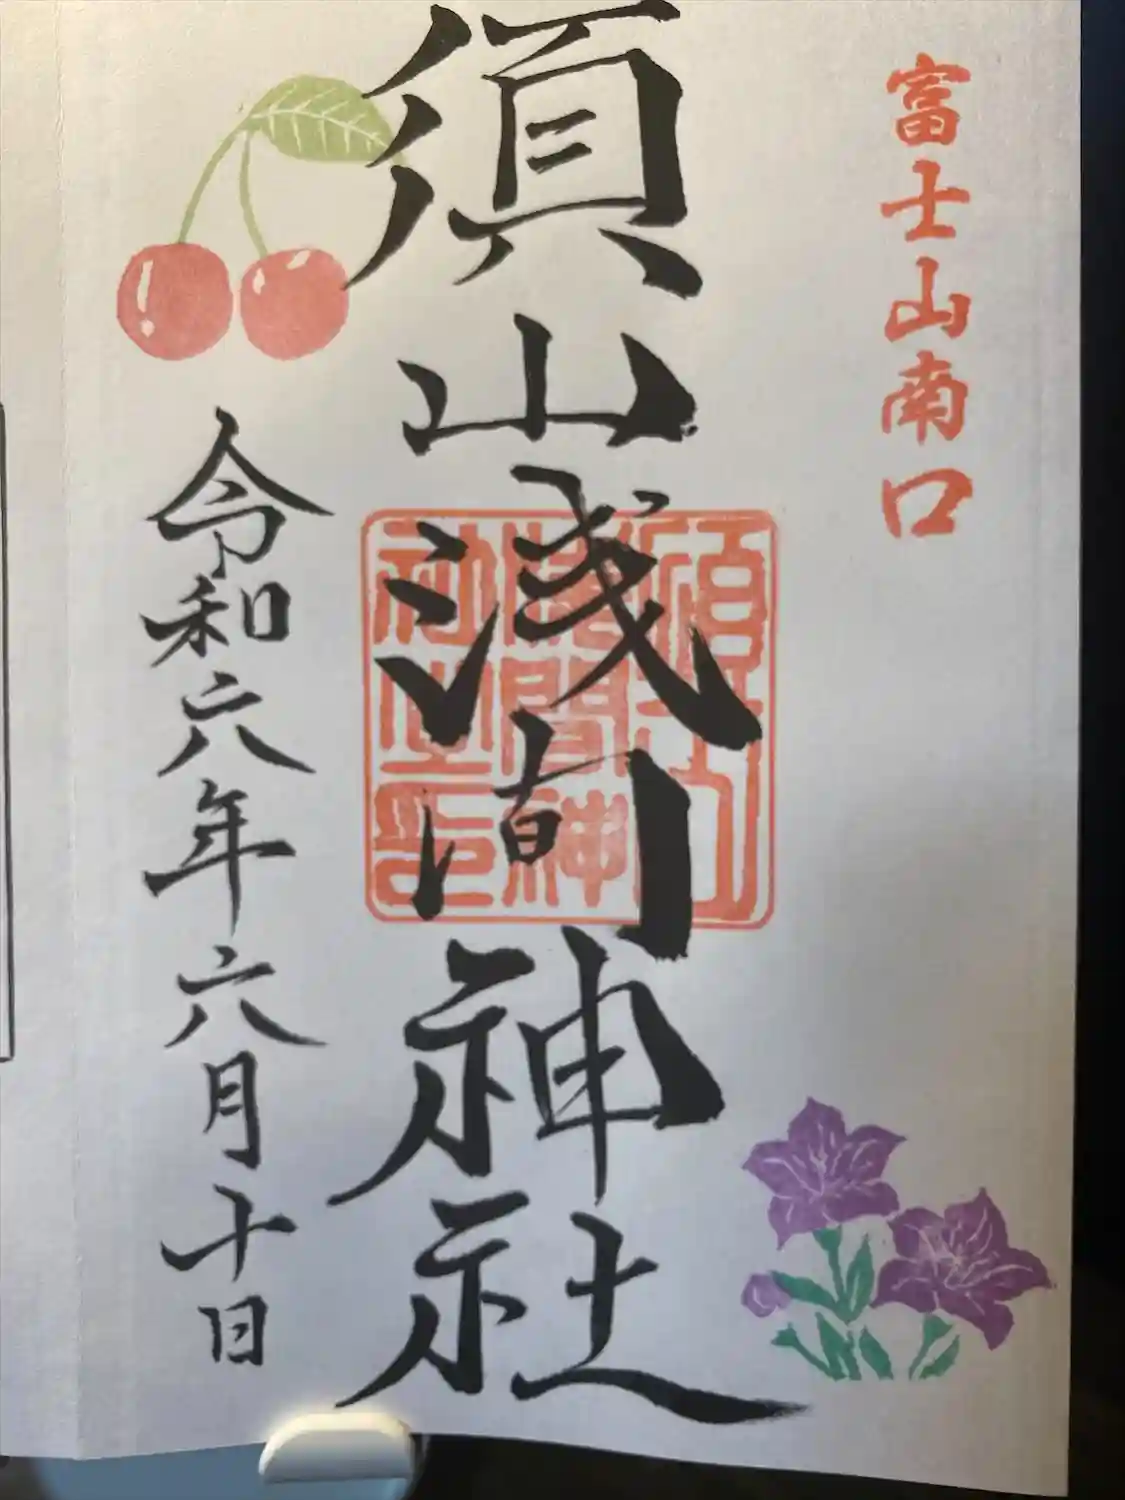 富士山南口
須山浅间神社
須山
浅間神
社之印
令和六年六月十日